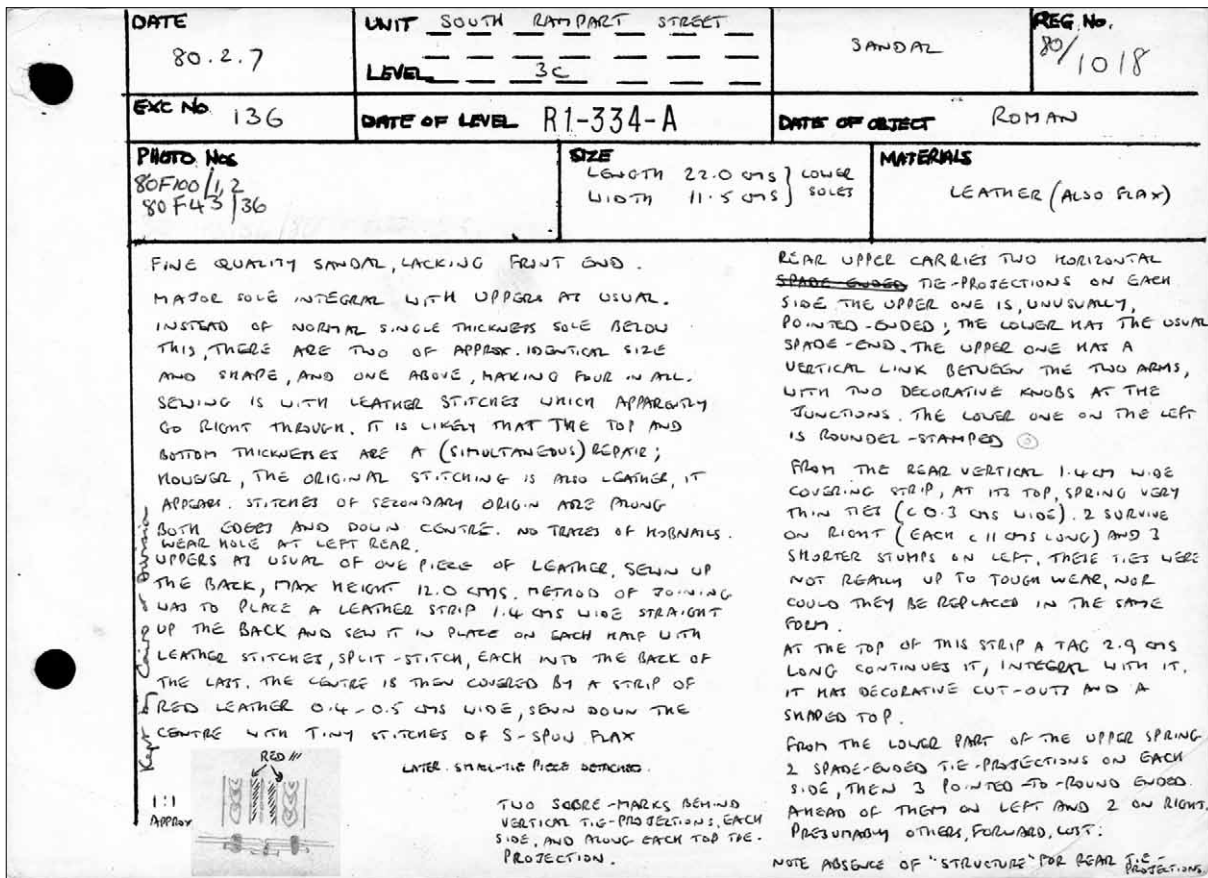 DATE
80.2.7
UNIT SOUTH RAMPART STREET
LEVEL 3C
SANDAL
REG No.
80/1018
EXC No 136
DATE OF LEVEL R1-334-A
DATE OF OBJECT ROMAN
PHOTO Nos
80F100/1,2
80F43/36
SIZE
LENGTH 22.0 CMS } LOWER
WIDTH 11.5 CMS } SOLES
MATERIALS
LEATHER (ALSO FLAX)
FINE QUALITY SANDAL, LACKING FRONT END.
MAJOR SOLE INTEGRAL WITH UPPERS AS USUAL.
INSTEAD OF NORMAL SINGLE THICKNESS SOLE BELOW
THIS, THERE ARE TWO OF APPROX. IDENTICAL SIZE
AND SHAPE, AND ONE ABOVE, MAKING FOUR IN ALL.
SEWING IS WITH LEATHER STITCHES WHICH APPARENTLY
GO RIGHT THROUGH. IT IS LIKELY THAT THE TOP AND
BOTTOM THICKNESSES ARE A (SIMULTANEOUS) REPAIR;
HOWEVER, THE ORIGINAL STITCHING IS ALSO LEATHER, IT
APPEARS. STITCHES OF SECONDARY ORIGIN ARE ALONG
BOTH EDGES AND DOWN CENTRE. NO TRACES OF HOBNAILS.
WEAR HOLE AT LEFT REAR.
UPPERS AS USUAL OF ONE PIECE OF LEATHER, SEWN UP
THE BACK, MAX HEIGHT 12.0 CMS. METHOD OF JOINING
WAS TO PLACE A LEATHER STRIP 1.4 CMS WIDE STRAIGHT
UP THE BACK AND SEW IT IN PLACE ON EACH HALF WITH
LEATHER STITCHES, SPLIT-STITCH, EACH INTO THE BACK OF
THE LAST. THE CENTRE IS THEN COVERED BY A STRIP OF
RED LEATHER 0.4-0.5 CMS WIDE, SEWN DOWN THE
CENTRE WITH TINY STITCHES OF S-SPUN FLAX
Kept by Cairo
RED
1:1
APPROX
LATER. SMALL-TIE PIECE DETACHED.
TWO SCORE-MARKS BEHIND
VERTICAL TIE-PROJECTIONS, EACH
SIDE, AND ALONG EACH TOP TIE-
PROJECTION.
REAR UPPER CARRIES TWO HORIZONTAL
SPADE ENDED TIE-PROJECTIONS ON EACH
SIDE. THE UPPER ONE IS, UNUSUALLY,
POINTED-ENDED; THE LOWER HAS THE USUAL
SPADE-END. THE UPPER ONE HAS A
VERTICAL LINK BETWEEN THE TWO ARMS,
WITH TWO DECORATIVE KNOBS AT THE
JUNCTIONS. THE LOWER ONE ON THE LEFT
IS ROUNDEL-STAMPED
FROM THE REAR VERTICAL 1.4CM WIDE
COVERING STRIP, AT ITS TOP, SPRING VERY
THIN TIES (C 0.3 CMS WIDE). 2 SURVIVE
ON RIGHT (EACH C 11 CMS LONG) AND 3
SHORTER STUMPS ON LEFT. THESE TIES WERE
NOT REALLY UP TO TOUGH WEAR, NOR
COULD THEY BE REPLACED IN THE SAME
FORM.
AT THE TOP OF THIS STRIP A TAG 2.9 CMS
LONG CONTINUES IT, INTEGRAL WITH IT.
IT HAS DECORATIVE CUT-OUTS AND A
SHAPED TOP.
FROM THE LOWER PART OF THE UPPER SPRING
2 SPADE-ENDED TIE-PROJECTIONS ON EACH
SIDE, THEN 3 POINTED-TO-ROUND ENDED.
AHEAD OF THEM ON LEFT AND 2 ON RIGHT.
PRESUMABLY OTHERS, FORWARD, LOST.
NOTE ABSENCE OF "STRUCTURE" FOR REAR TIE-
PROJECTIONS